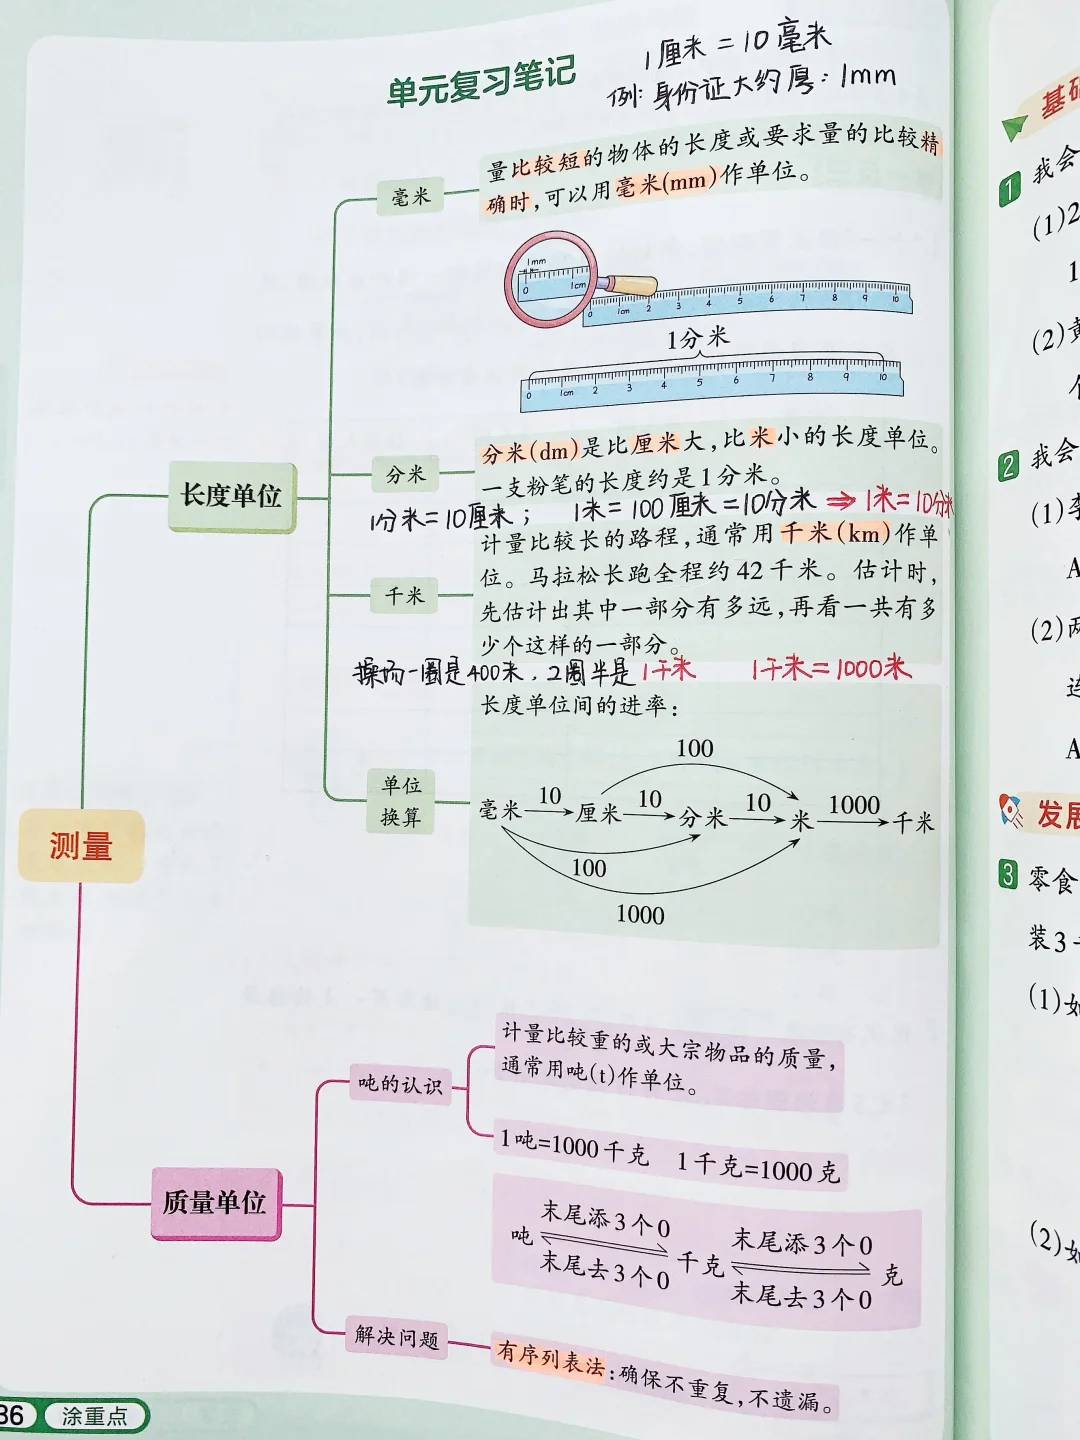 单元复习笔记
1厘米=10毫米
例:身份证大约厚:1mm
毫米
量比较短的物体的长度或要求量的比较精
确时,可以用毫米(mm)作单位。
1mm
0 1cm
0 1cm 2 3 4 5 6 7 8 9 10
1分米
0 1cm 2 3 4 5 6 7 8 9 10
长度单位
分米
分米(dm)是比厘米大,比米小的长度单位。
一支粉笔的长度约是1分米。
1分米=10厘米; 1米=100厘米=10分米⇒1米=10分米
千米
计量比较长的路程,通常用千米(km)作单
位。马拉松长跑全程约42千米。估计时,
先估计出其中一部分有多远,再看一共有多
少个这样的一部分。
操场一圈是400米.2圈半是1千米 1千米=1000米
单位
换算
长度单位间的进率:
100
毫米 10 厘米 10 分米 10 米 1000 千米
100
1000
测量
质量单位
吨的认识
计量比较重的或大宗物品的质量,
通常用吨(t)作单位。
1吨=1000千克 1千克=1000克
末尾添3个0 末尾添3个0
吨 千克 克
末尾去3个0 末尾去3个0
解决问题
有序列表法:确保不重复,不遗漏。
36 涂重点
1 我会
(1)2
1
(2)黄
2 我会
(1)李
A
(2)两
连
A
发展
3 零食
装3
(1)如
(2)如